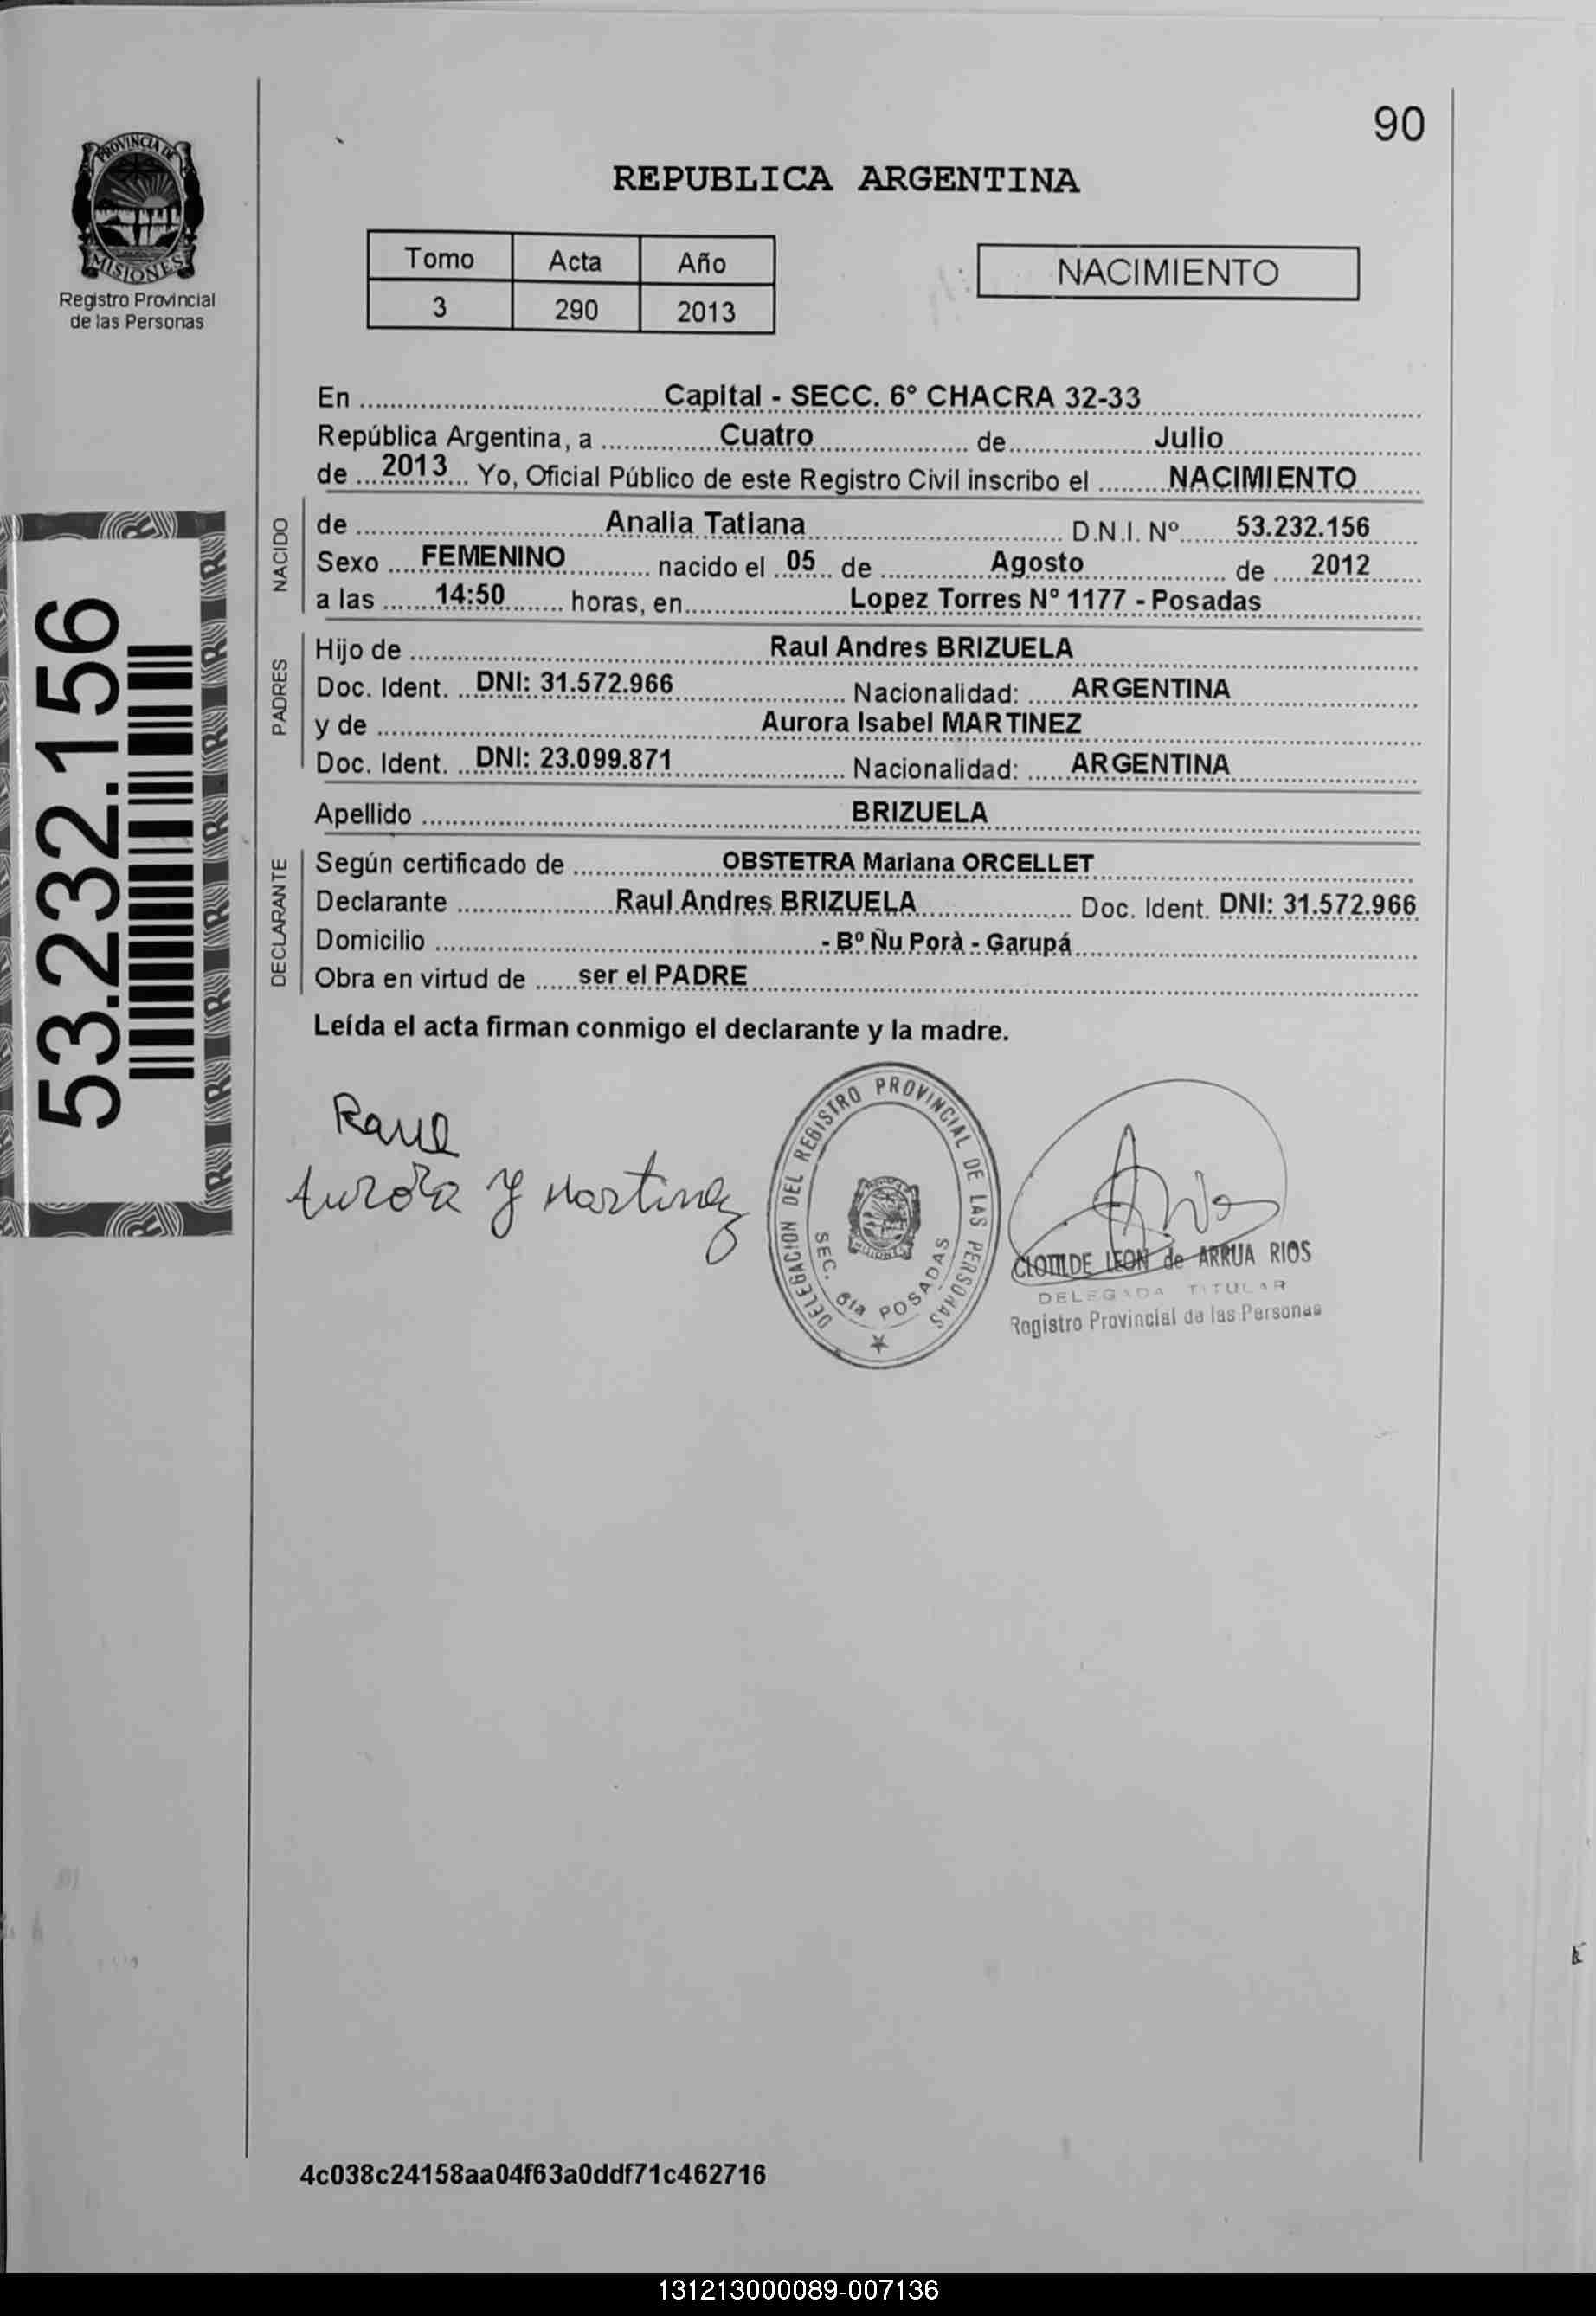 90
PROVINCIA DE
MISIONES
Registro Provincial
de las Personas
REPUBLICA ARGENTINA
Tomo Acta Año
3 290 2013
NACIMIENTO
En Capital - SECC. 6º CHACRA 32-33
República Argentina, a Cuatro de Julio
de 2013 Yo, Oficial Público de este Registro Civil inscribo el NACIMIENTO
NACIDO
de Analia Tatiana D.N.I. Nº 53.232.156
Sexo FEMENINO nacido el 05 de Agosto de 2012
a las 14:50 horas, en Lopez Torres Nº 1177 - Posadas
PADRES
Hijo de Raul Andres BRIZUELA
Doc. Ident. DNI: 31.572.966 Nacionalidad: ARGENTINA
y de Aurora Isabel MARTINEZ
Doc. Ident. DNI: 23.099.871 Nacionalidad: ARGENTINA
Apellido BRIZUELA
DECLARANTE
Según certificado de OBSTETRA Mariana ORCELLET
Declarante Raul Andres BRIZUELA Doc. Ident. DNI: 31.572.966
Domicilio - Bº Ñu Porà - Garupá
Obra en virtud de ser el PADRE
Leída el acta firman conmigo el declarante y la madre.
53.232.156
Raul
Aurora Y Martinez
DELEGACION DEL REGISTRO PROVINCIAL DE LAS PERSONAS
SEC. 6ta POSADAS
CLOTILDE LEON de ARRUA RIOS
DELEGADA TITULAR
Registro Provincial de las Personas
4c038c24158aa04f63a0ddf71c462716
131213000089-007136